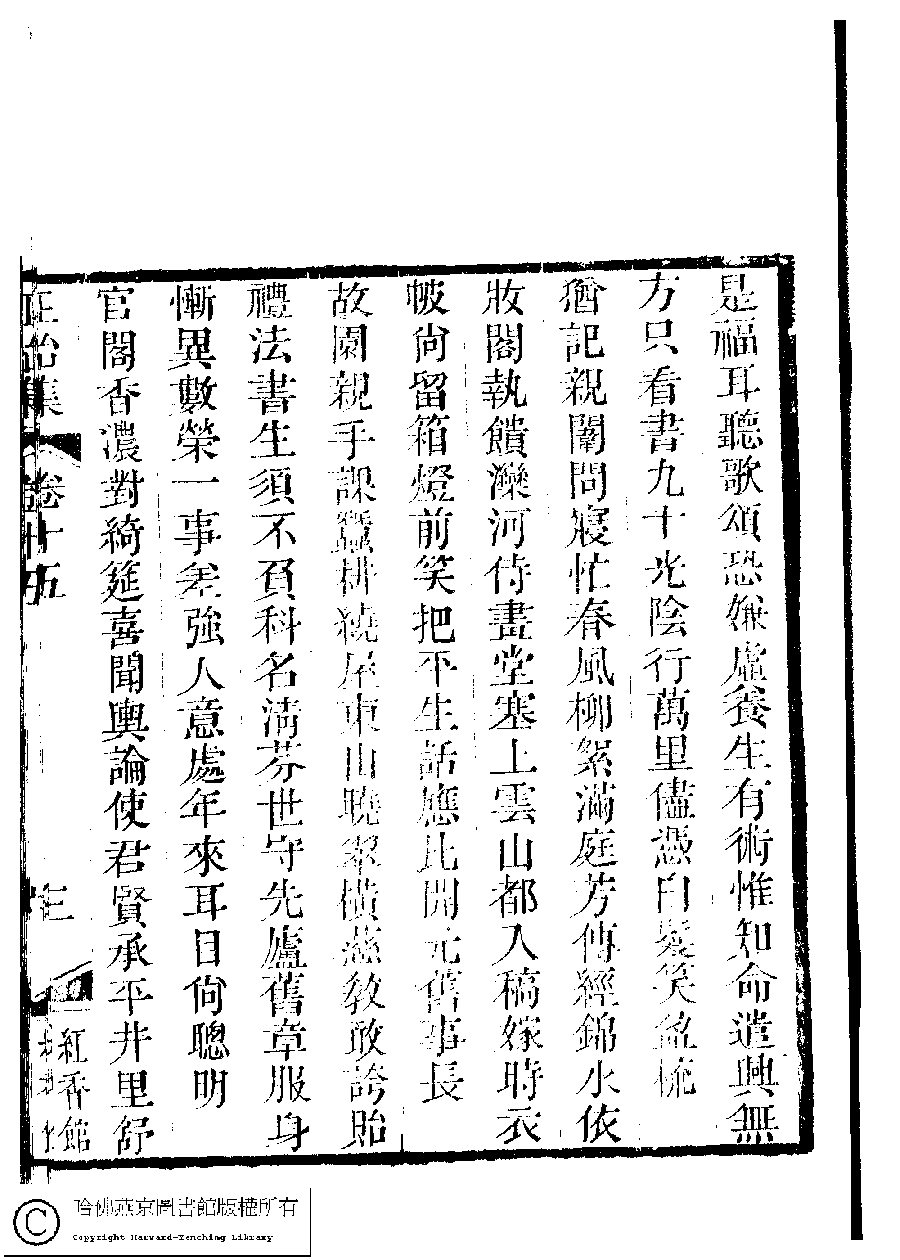 是福耳聽歌頌恐嫌虛養生有術惟知命遣興無
方只看書九十光陰行萬里儘憑白髮笑盈梳
猶記親闈問寢忙春風柳絮滿庭芳傳經錦水依
妝閣執饋灤河侍畫堂塞上雲山都入稿嫁時衣
帔尙留箱燈前笑把平生話應比開元舊事長
故園親手課蠶耕繞屋東山曉翠橫慈教敢誇貽
禮法書生須不負科名淸芬世守先廬舊章服身
慚異數榮一事差強人意處年來耳目尙聰明
官閣香濃對綺筵喜聞輿論使君賢承平井里舒
正始集 卷十五 三 紅香館
哈佛燕京圖書館版權所有
Copyright Harvard-Yenching Library